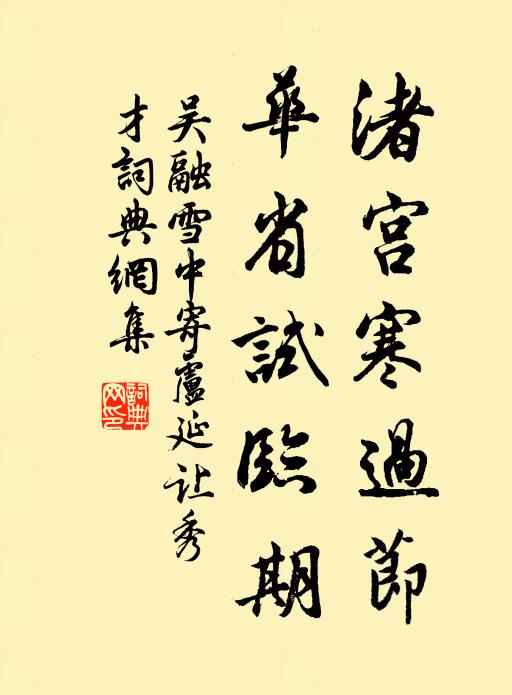 渚宮寒過節
華省試臨期
吴融雪中寄盧延让秀
才詞典網集
詞典
网印